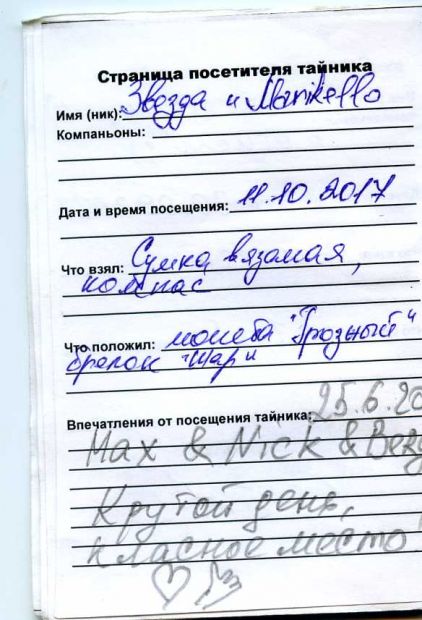 Страница посетителя тайника
Имя (ник): Звезда и Marikello
Компаньоны:
Дата и время посещения: 11.10.2017
Что взял: Сумка вязомая,
компас
Что положил: монета "Грозный"
брелок "Шар"
Впечатления от посещения тайника: 25.6.20
Max & Nick &
Крутой день,
класное место